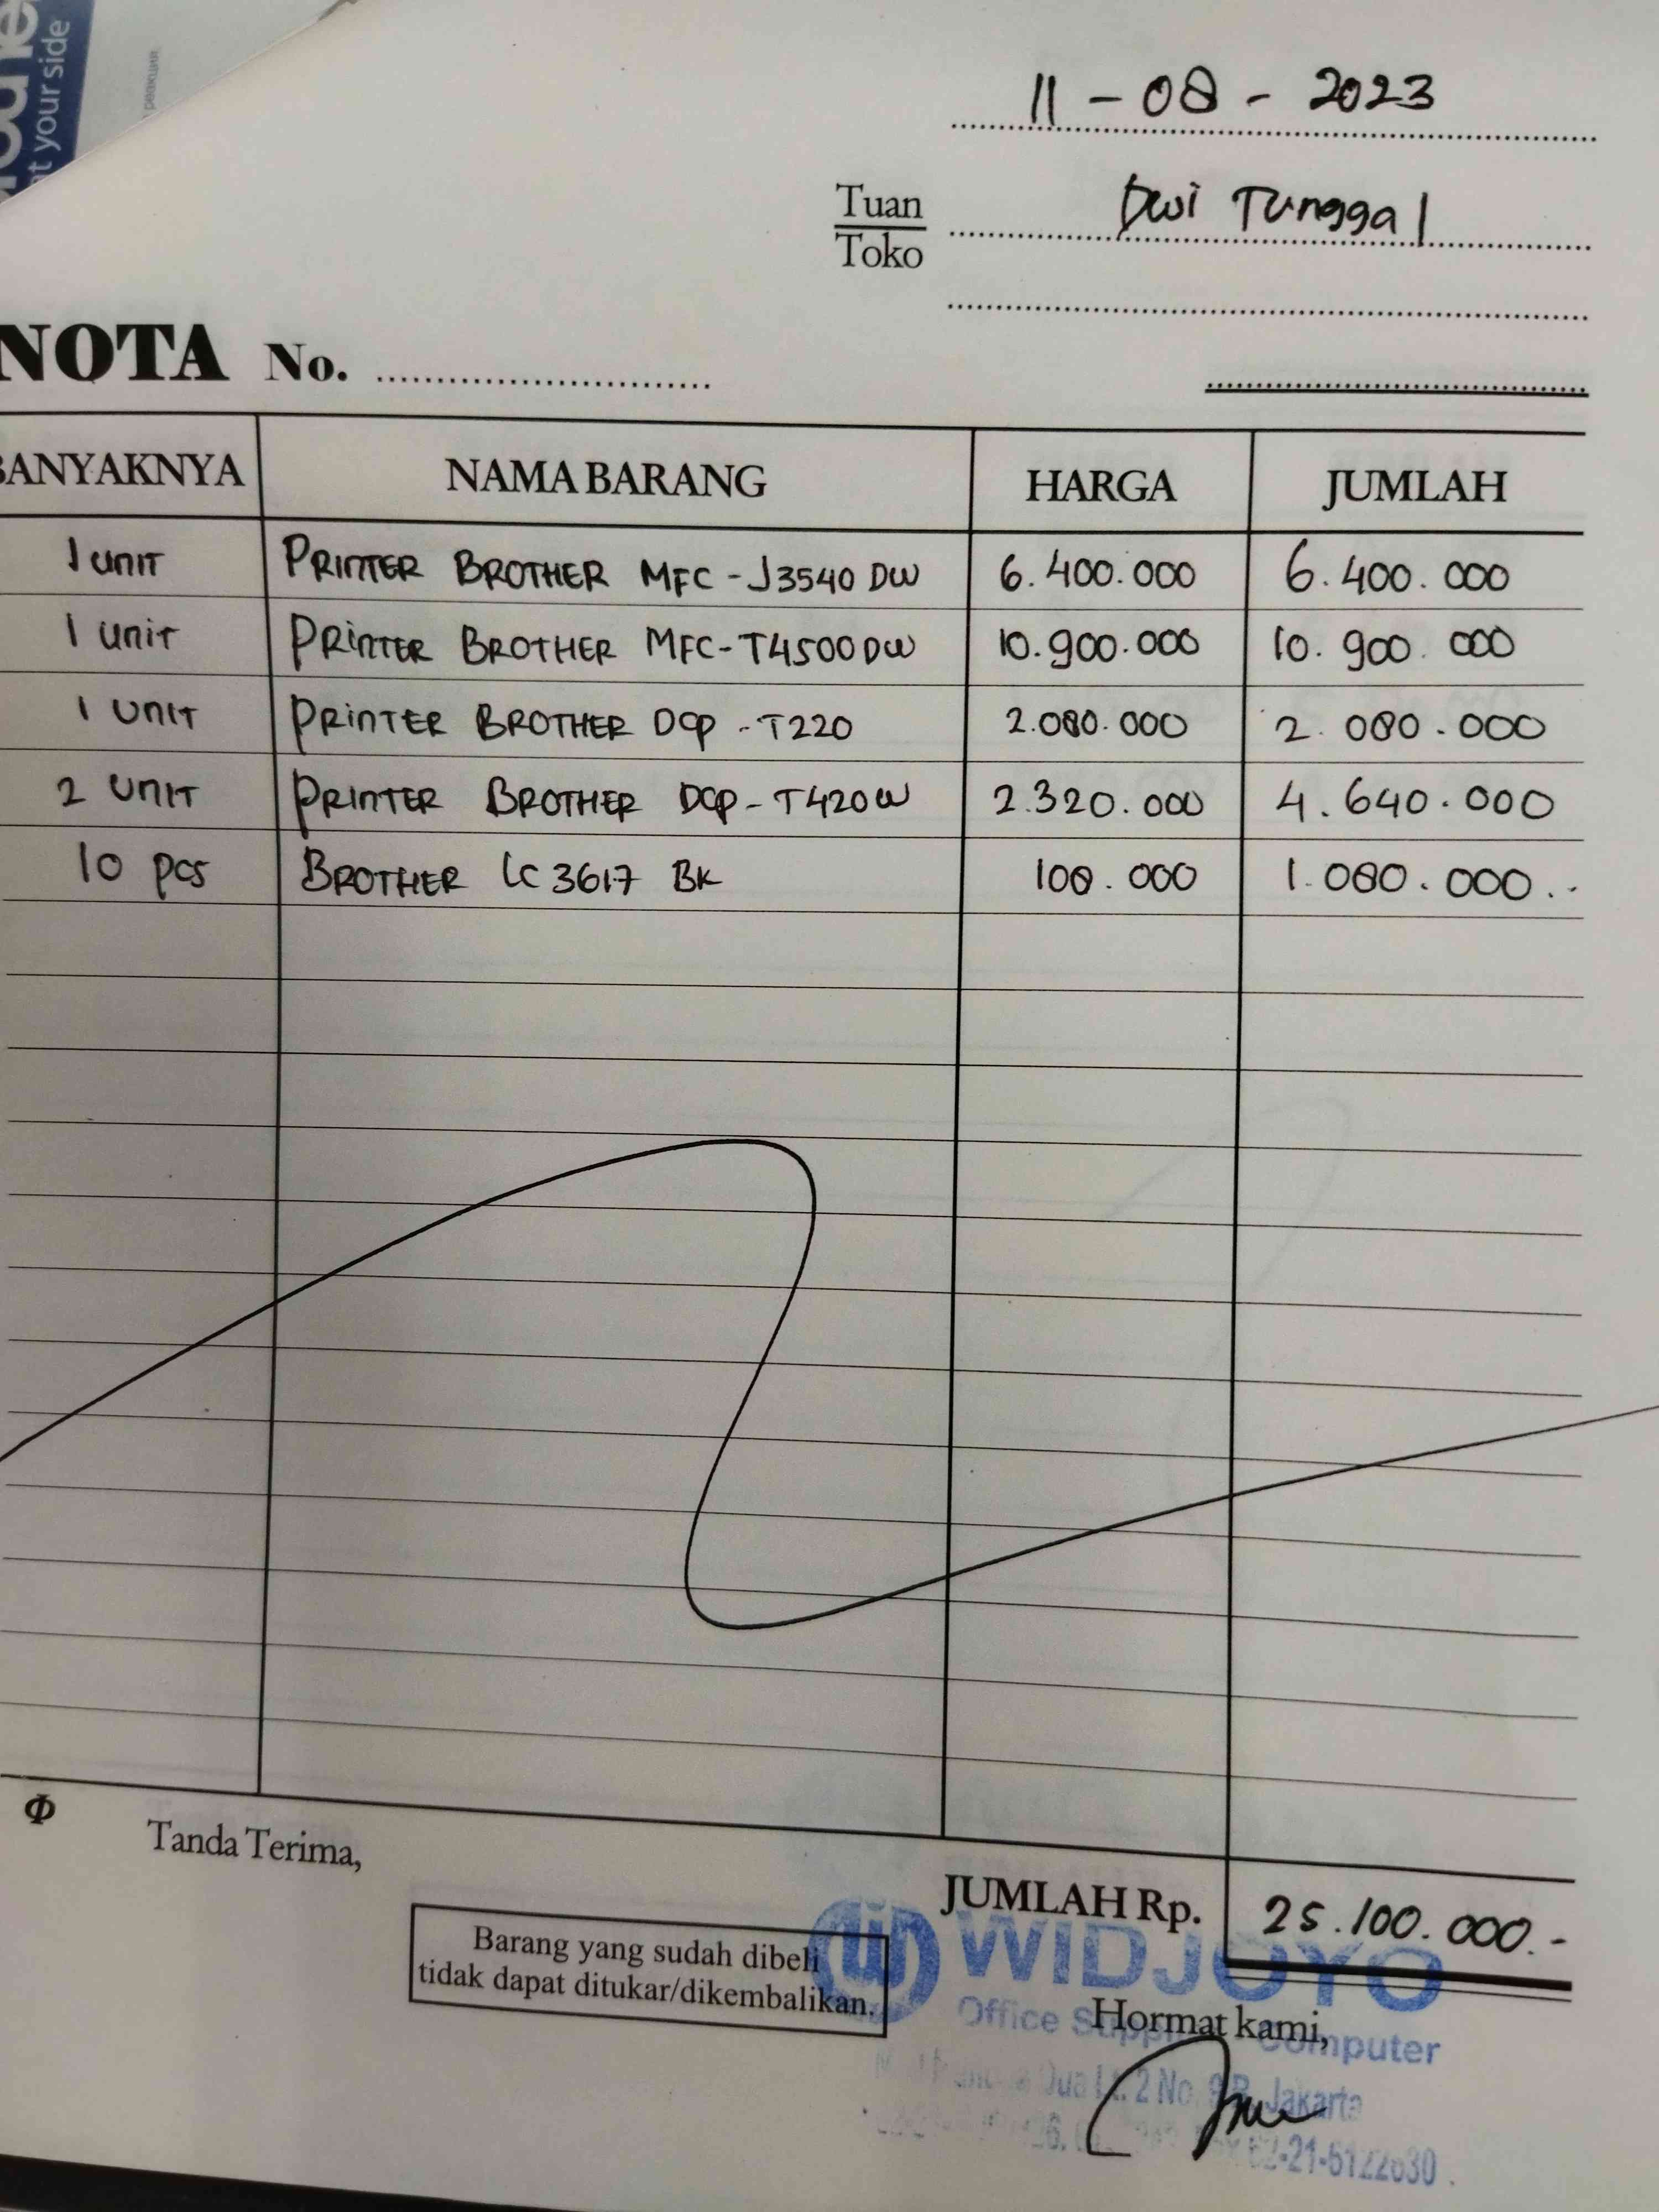 at your side
реакция
11 - 08 - 2023
Tuan
Toko
Dwi Tunggal
NOTA No.
BANYAKNYA NAMA BARANG HARGA JUMLAH
1 unit PRINTER BROTHER MFC - J3540 DW 6.400.000 6.400.000
1 unit PRINTER BROTHER MFC - T4500DW 10.900.000 10.900.000
1 unit PRINTER BROTHER DCP - T220 2.080.000 2.080.000
2 unit PRINTER BROTHER DCP - T420W 2.320.000 4.640.000
10 pcs BROTHER LC 3617 BK 108.000 1.080.000.-
Φ Tanda Terima,
JUMLAH Rp. 25.100.000.-
Barang yang sudah dibeli
tidak dapat ditukar/dikembalikan.
WIDJOYO
Hormat kami,
Office Computer
Dua Lt. 2 No. Jakarta
62-21-6122630